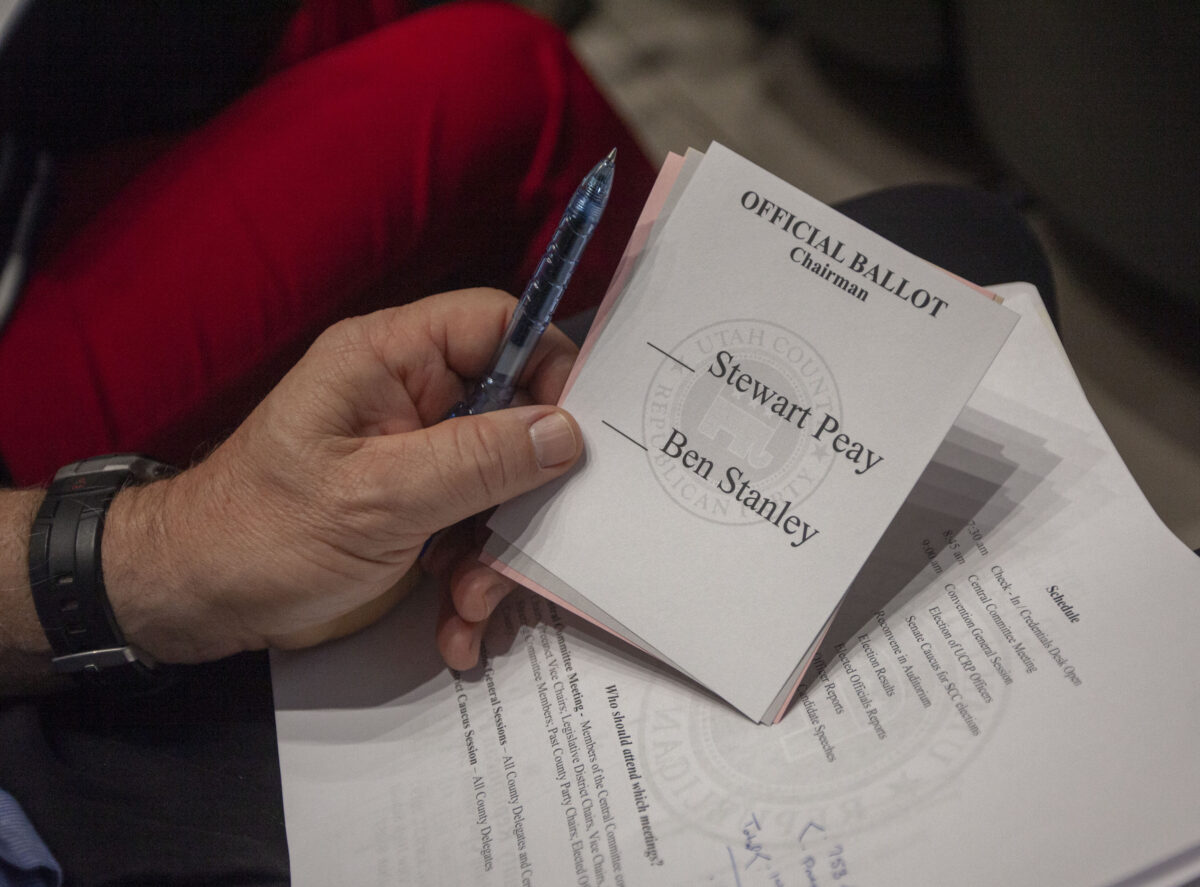 OFFICIAL BALLOT
Chairman
UTAH COUNTY
REPUBLICAN PARTY
Stewart Peay
Ben Stanley
Schedule
7:30 am Check - In / Credentials Desk Open
8:45 am Central Committee Meeting
9:00 am Convention General Session
Election of UCRP Officers
Senate Caucus for SCC elections
Reconvene in Auditorium
Election Results
Elected Officials Reports
Reports
Candidate Speeches
Who should attend which meetings?
Committee Meeting - Members of the Central Committee
Precinct Vice Chairs; Legislative District Chairs, Vice Chairs
Committee Members; Past County Party Chairs; Elected
General Sessions – All County Delegates and
Caucus Session – All County Delegates